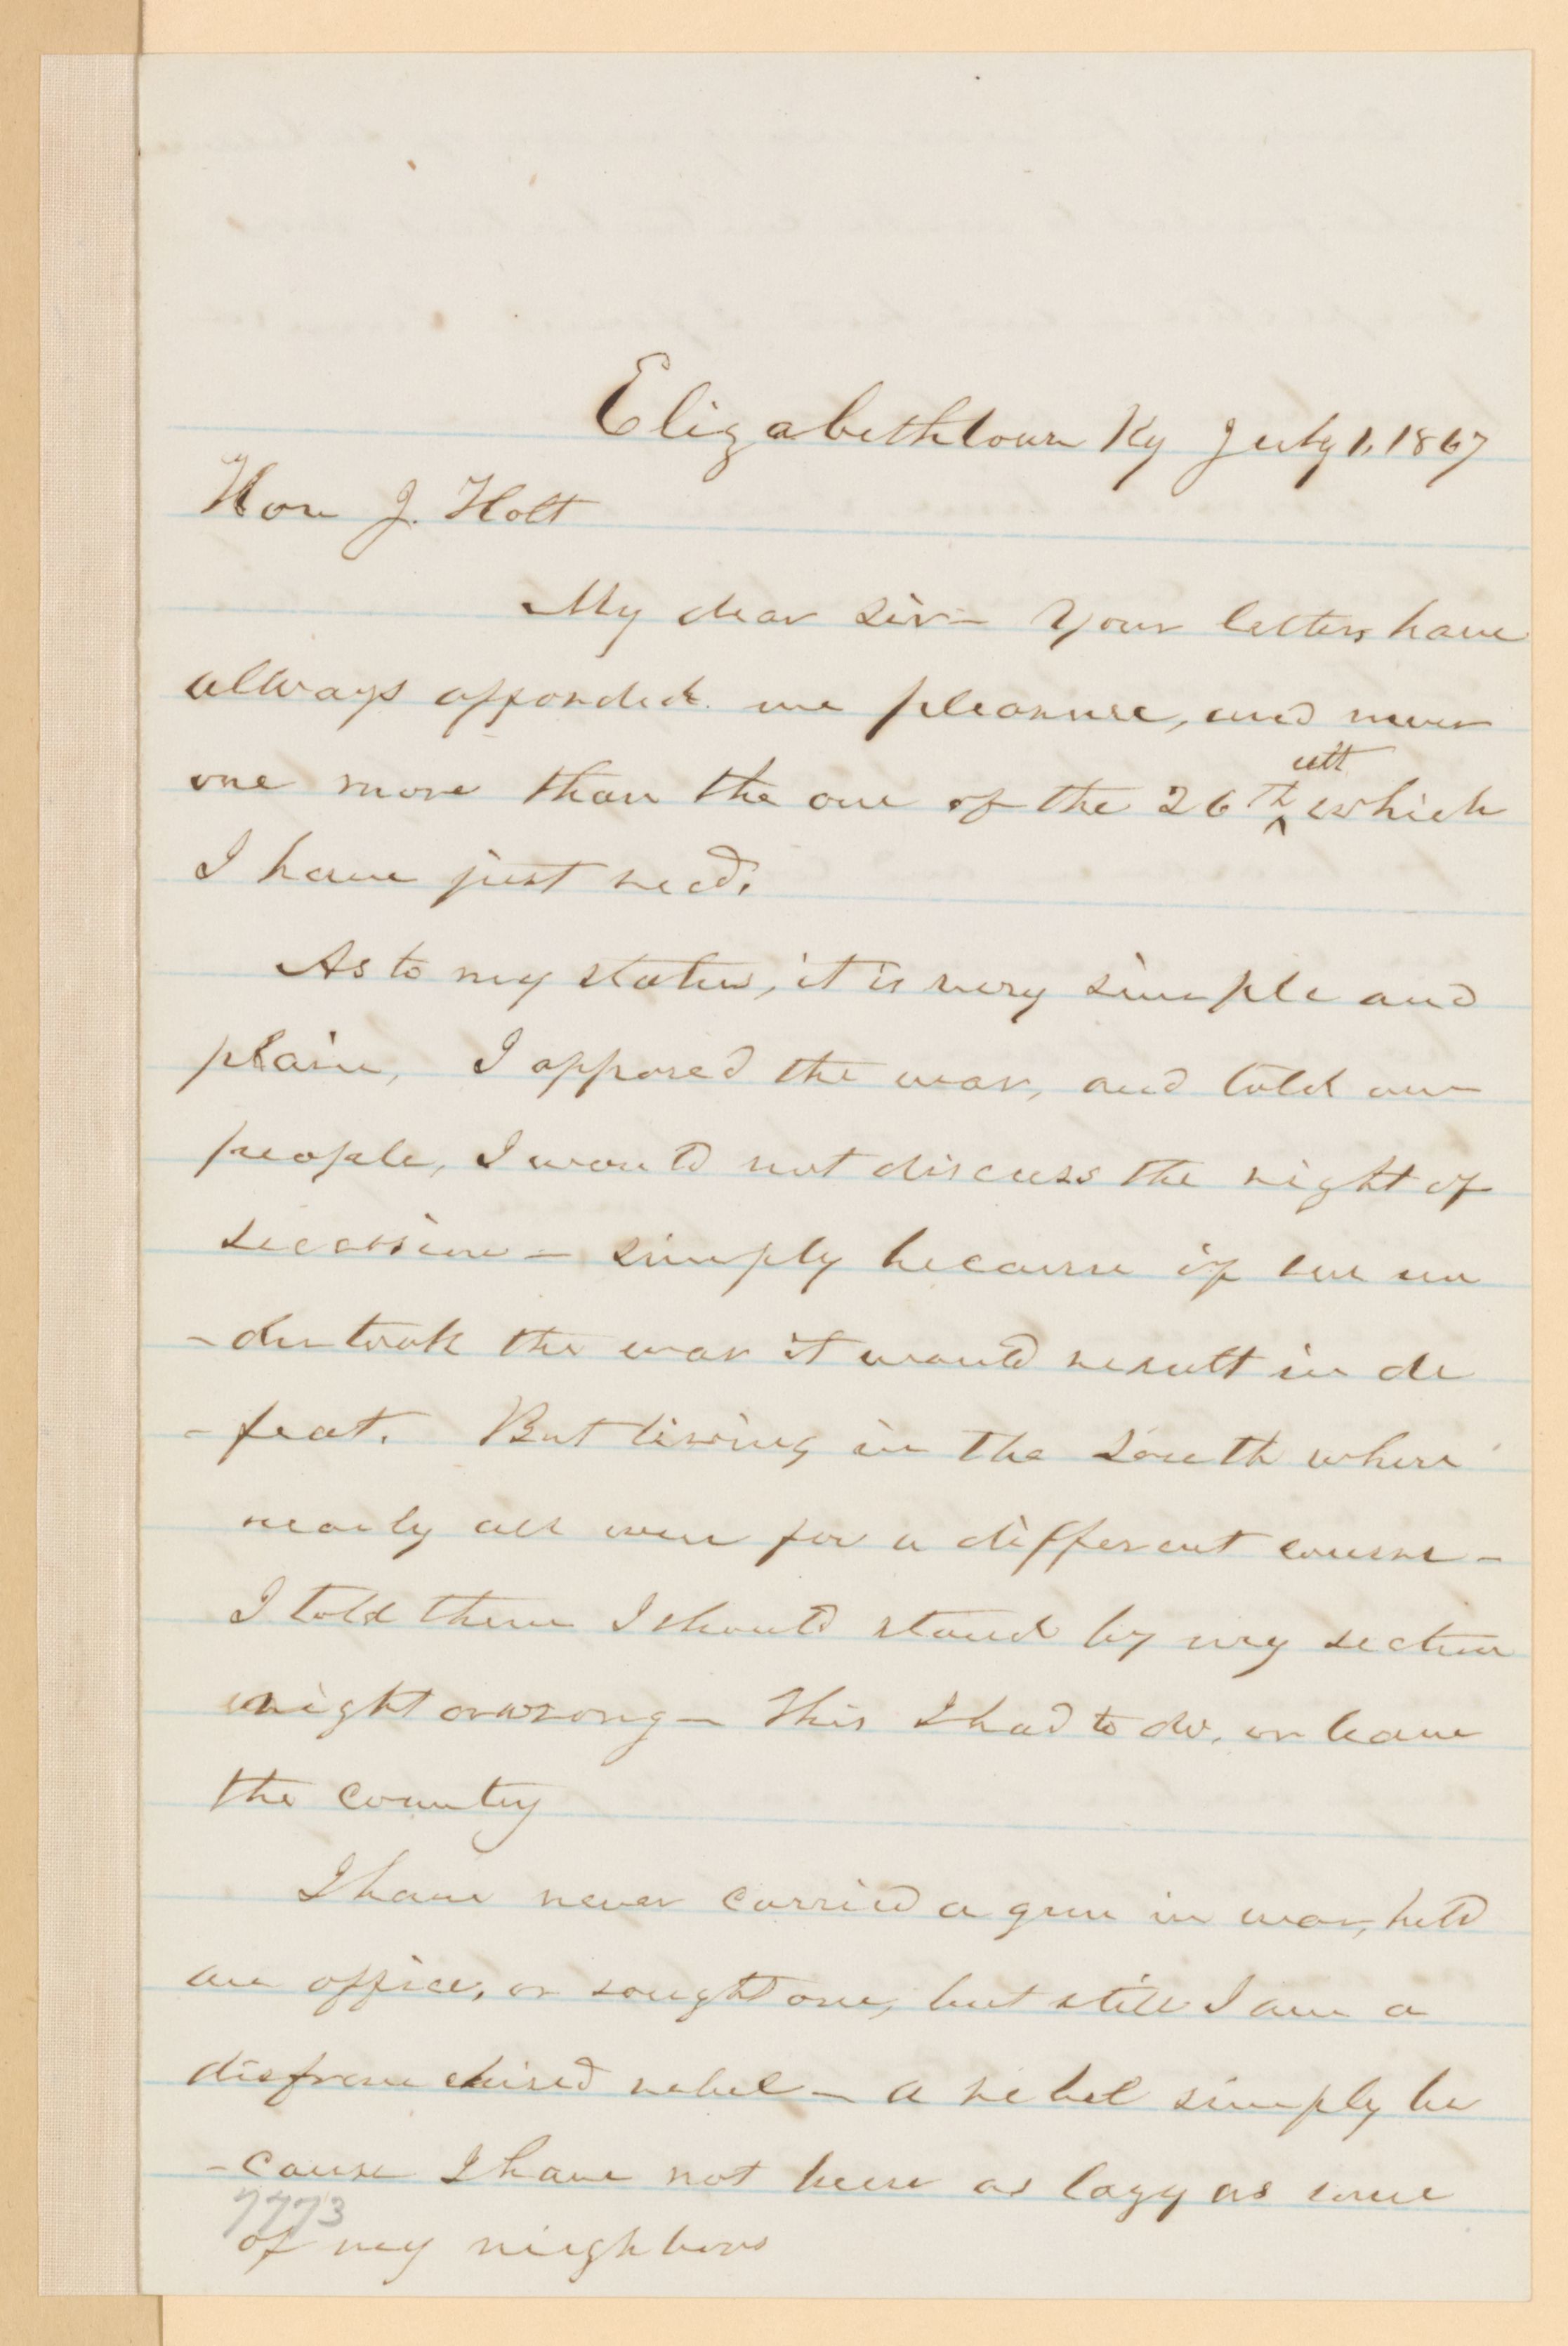 Elizabethtown Ky July 1, 1867
Hon J. Holt
My dear sir – Your letters have
always afforded me pleasure, and never
one more than the one of the 26th ult which
I have just recd.
As to my status, it is very simple and
plain, I opposed the war, and told our
people, I would not discuss the right of
secession – simply because if we un
-dertook the war it would result in de
-feat. But living in the South where
nearly all were for a different course –
I told them I should stand by my section
right or wrong – This I had to do, or leave
the country
I have never carried a gun in war, held
an office, or sought one, but still I am a
disfranchised rebel – a rebel simply be
-cause I have not been as lazy as some
7773
of my neighbors